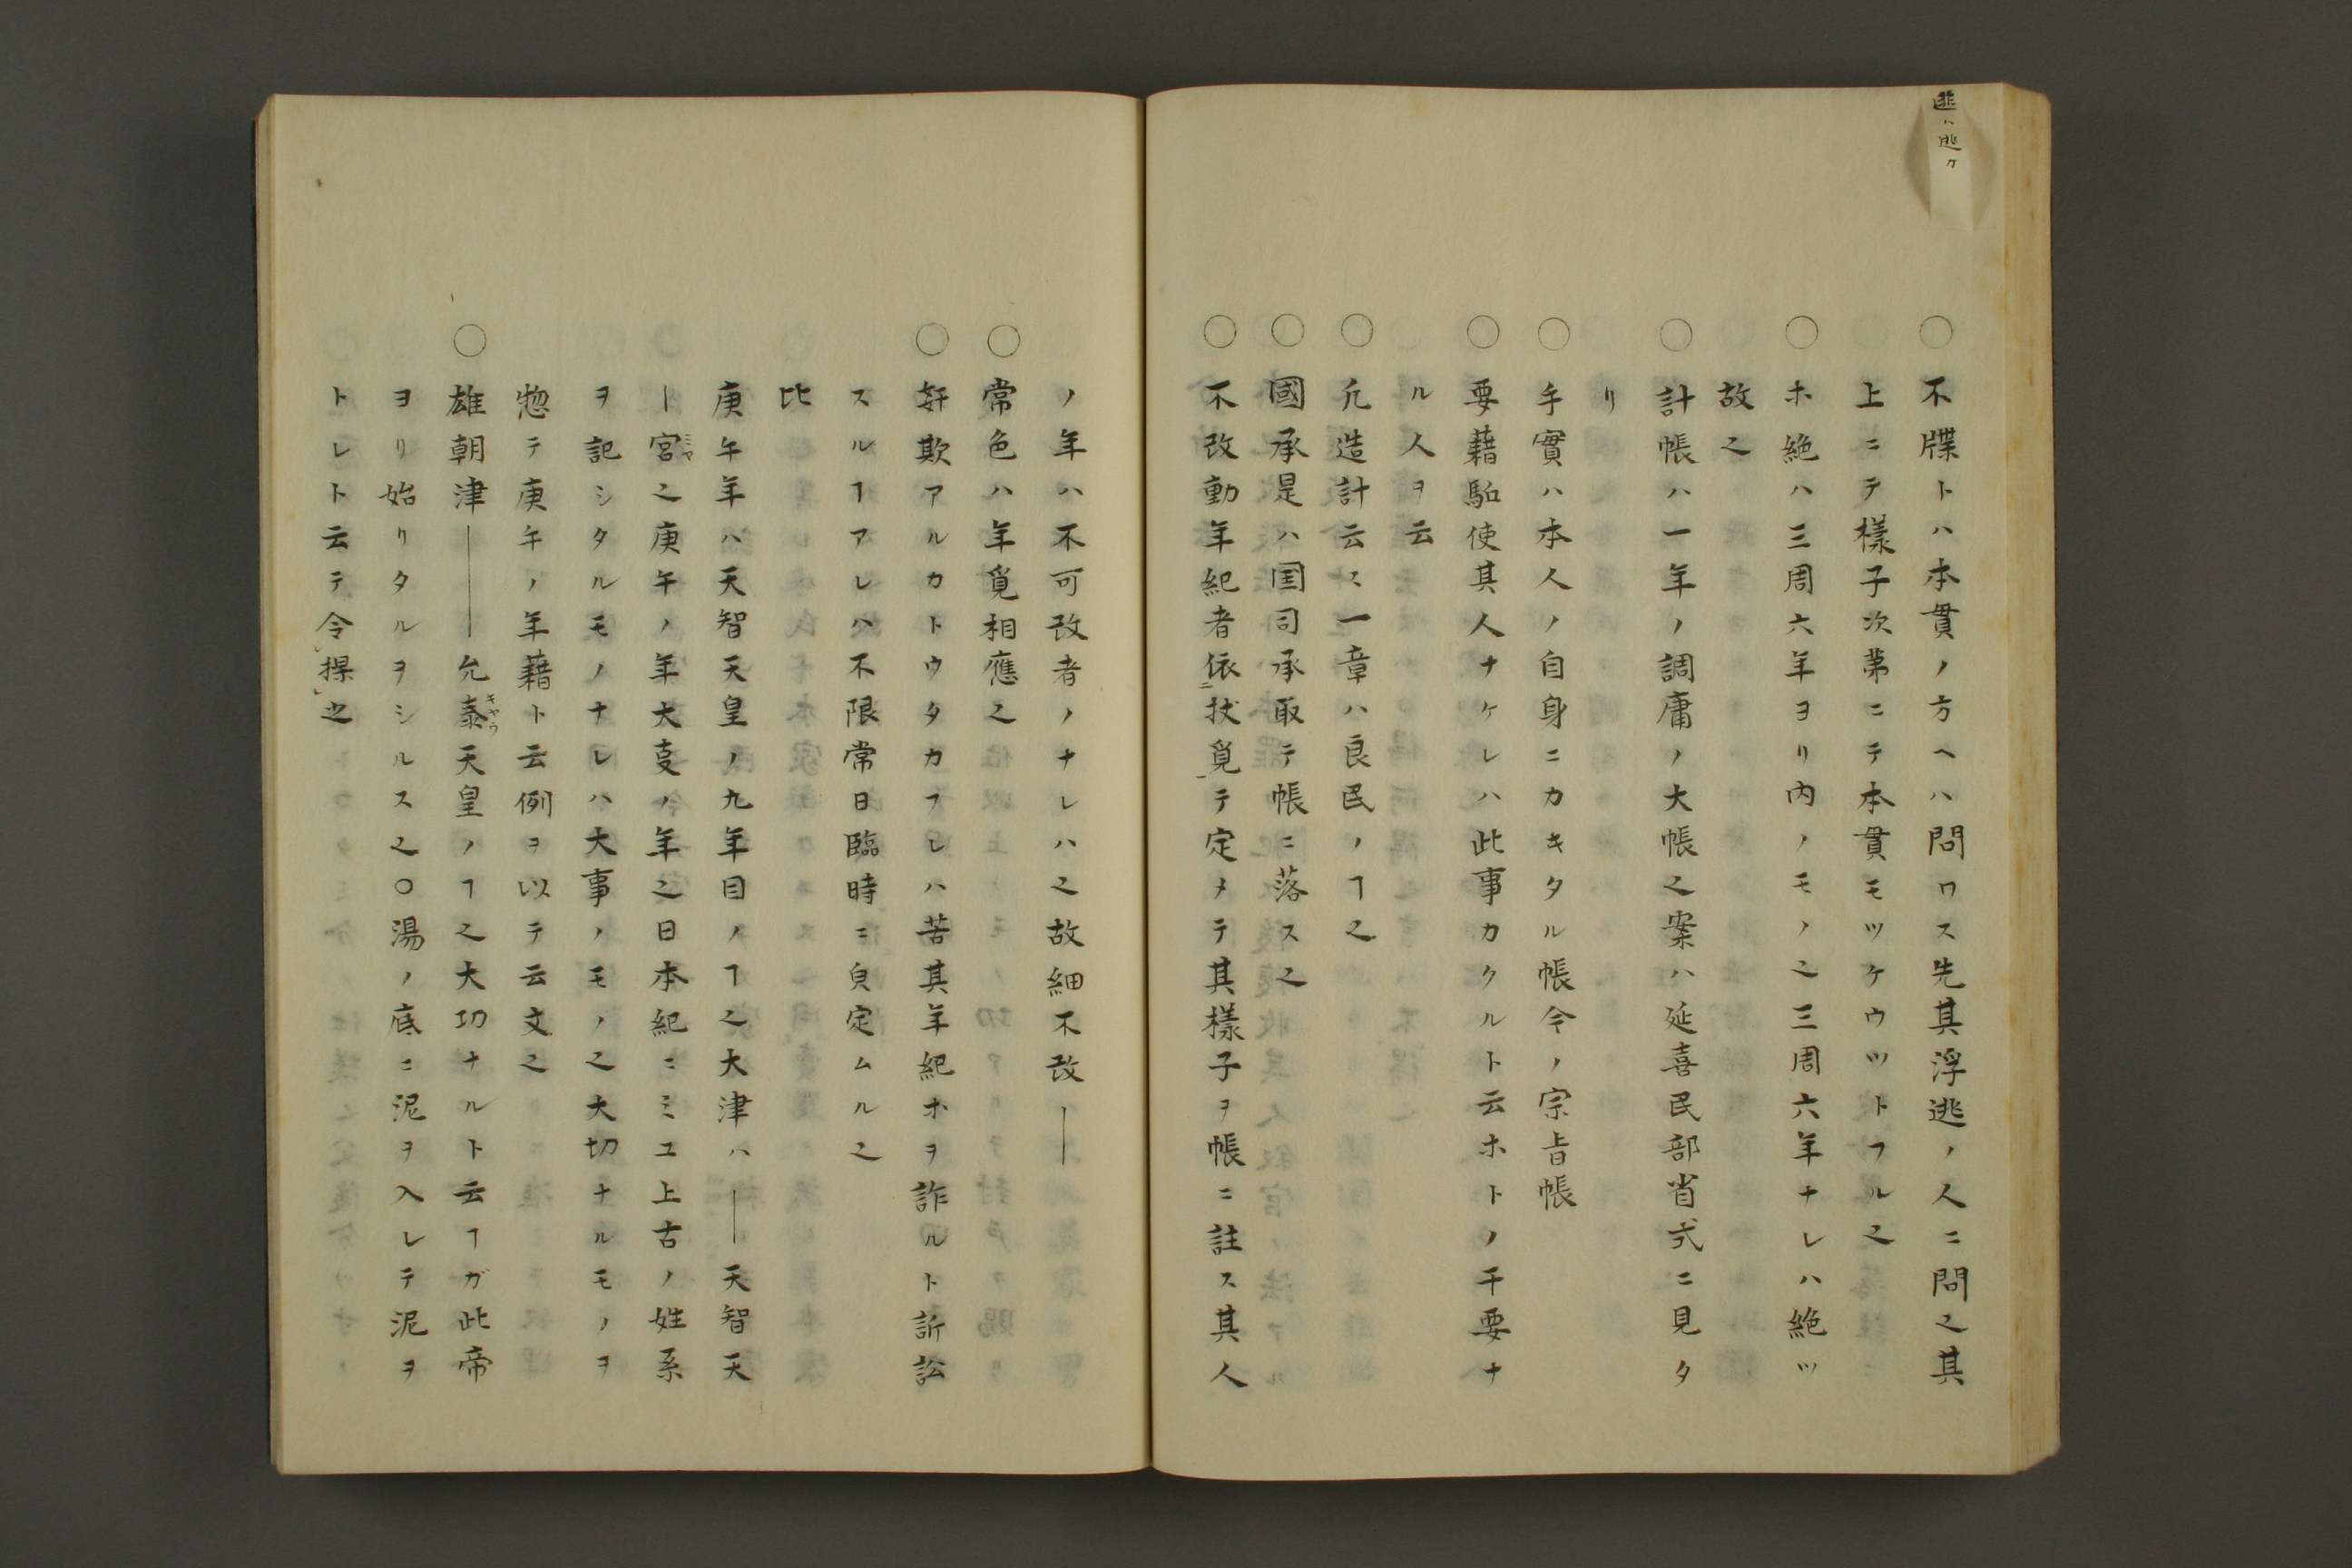 逃カ
○不牒トハ本貫ノ方ヘハ問ワス先其浮逃ノ人ニ問之其
上ニテ樣子次第ニテ本貫モツケウツトフル之
○ホ絶ハ三周六年ヨリ内ノモノ之三周六年ナレハ絶ツ
故之
○計帳ハ一年ノ調庸ノ大帳之案ハ延喜民部省式ニ見タ
リ
○手實ハ本人ノ自身ニカキタル帳今ノ宗旨帳
○要藉駈使其人ナケレハ此事カクルト云ホトノ干要ナ
ル人ヲ云
○凢造計云〻一章ハ良民ノヿ之
○國承是ハ国司承取テ帳ニ落ス之
○不改動年紀者依ニ扙覓一テ定メテ其樣子ヲ帳ニ註ス其人
ノ年ハ不可改者ノナレハ之故細不改――
○常色ハ年覓相應之
○奸欺アルカトウタカフレハ苦其年紀ホヲ詐ルト訴訟
スルヿアレハ不限常日臨時ニ㒵定ムル之
比
庚午年ハ天智天皇ノ九年目ノヿ之大津ハ――天智天
―宮ミヤ之庚午ノ年大㕝ノ年之日本紀ニミユ上古ノ姓系
ヲ記シタルモノナレハ大事ノモノ之大切ナルモノヲ
惣テ庚午ノ年藉ト云例ヲ以テ云文之
○雄朝津――允泰キヤウ天皇ノヿ之大功ナルト云ヿガ此帝
ヨリ始リタルヲシルス之○湯ノ底ニ泥ヲ入レテ泥ヲ
トレト云テ令探之